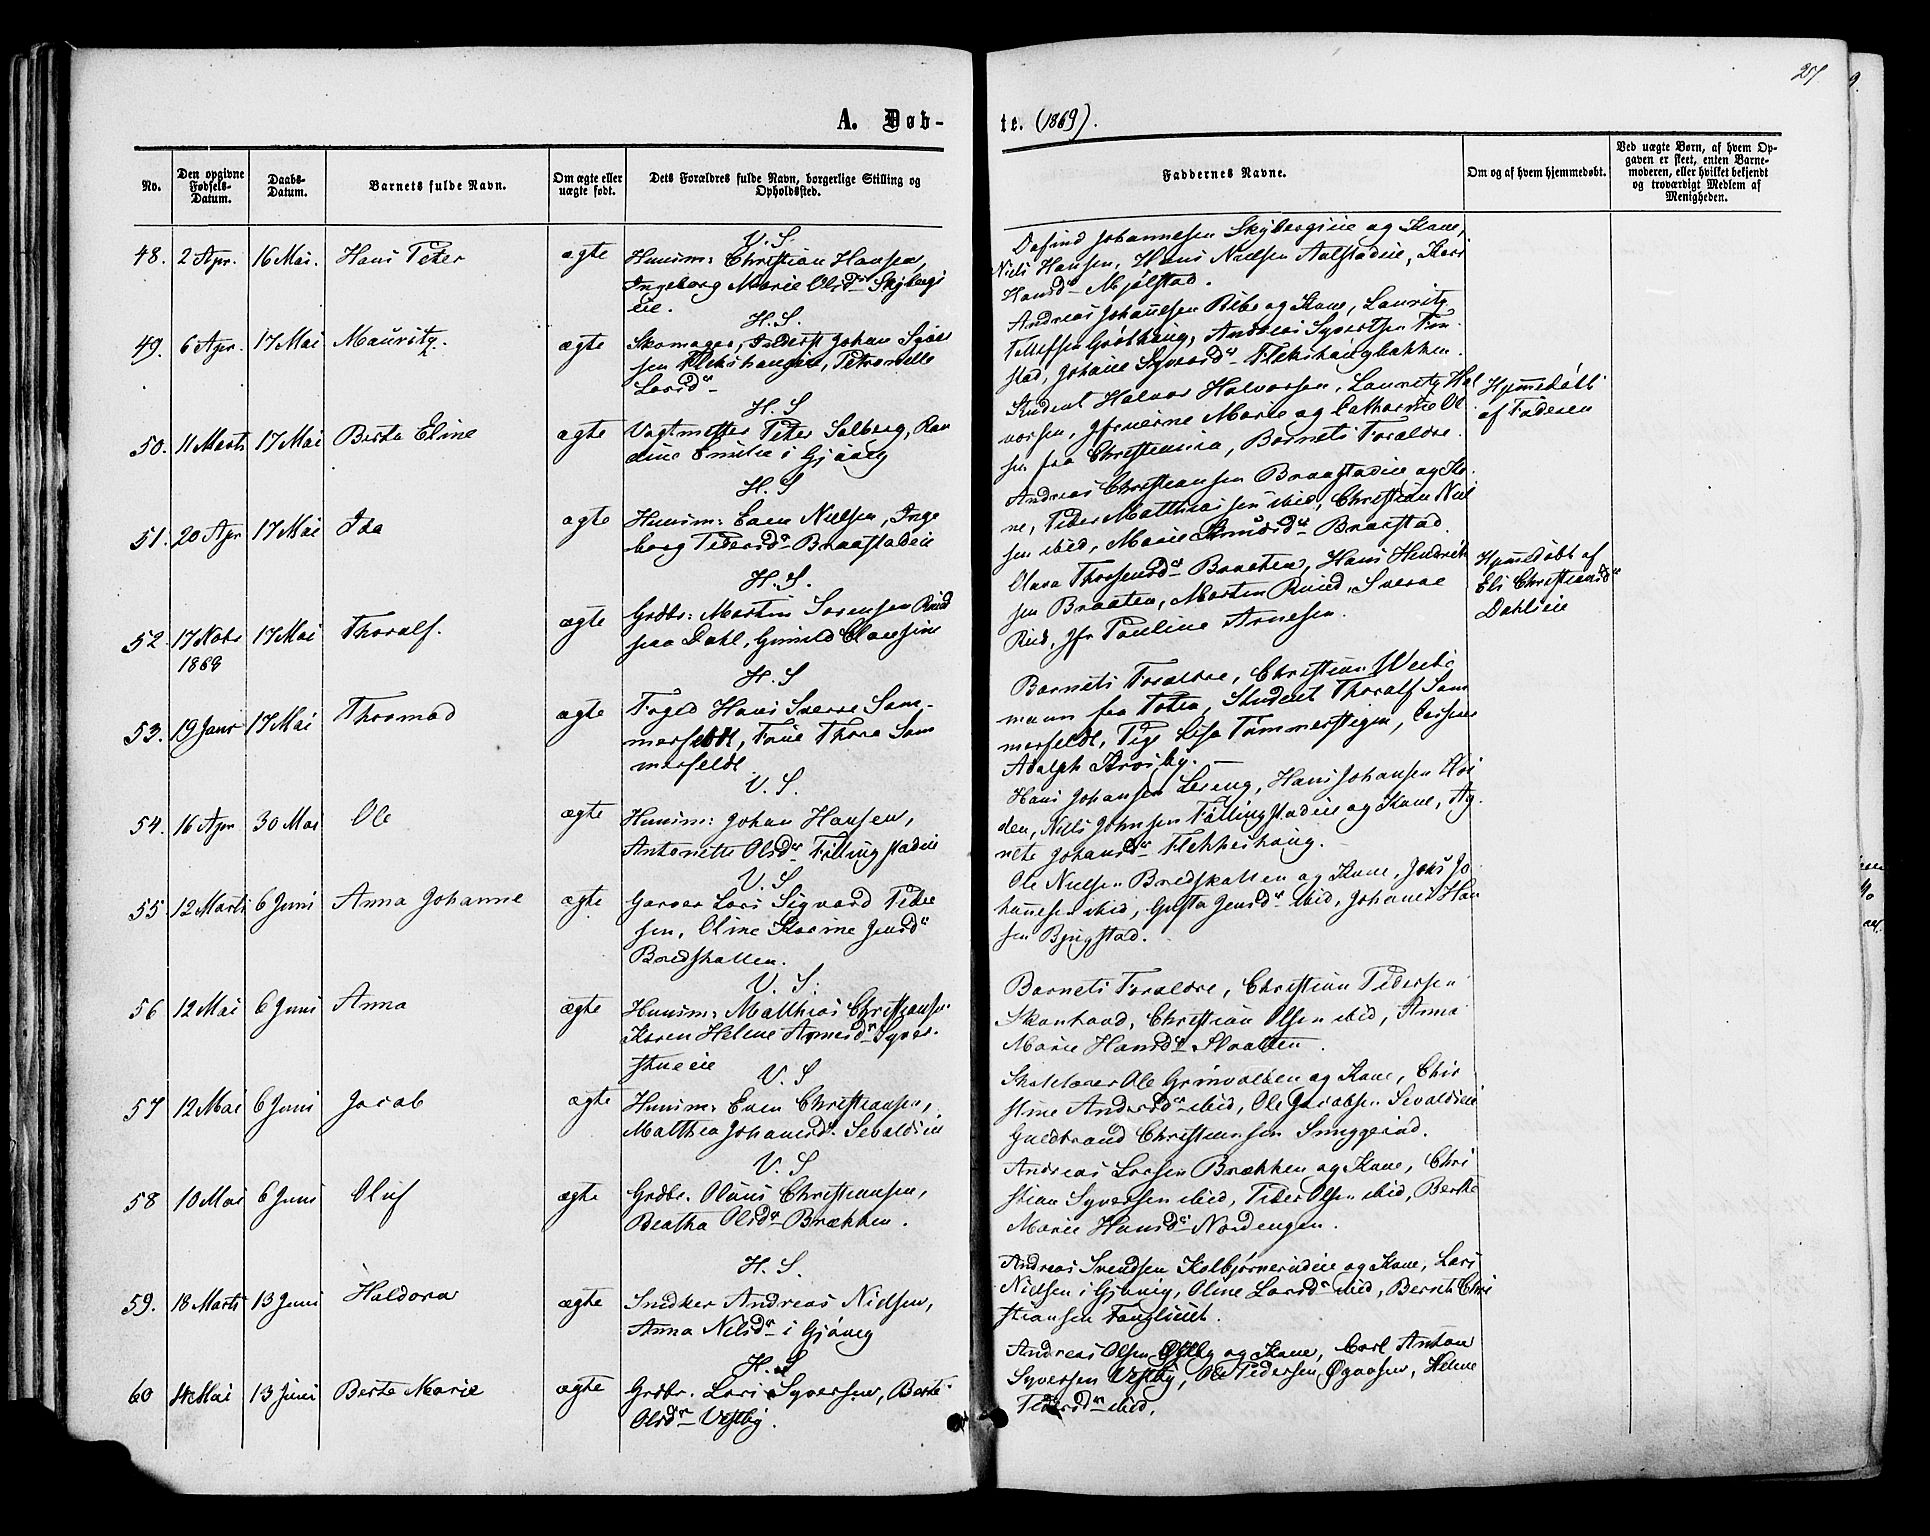 21
A. Døb-
te. (1869).
No.
Den opgivne Fødsels-Datum.
Daabs-Datum.
Barnets fulde Navn.
Om ægte eller uægte født.
Dets Forældres fulde Navn, borgerlige Stilling og Opholdssted.
Faddernes Navne.
Om og af hvem hjemmedøbt.
Ved uægte Børn, af hvem Opgaven er skeet, enten Barnemoderen, eller hvilket bekjendt og troværdigt Medlem af Menigheden.
V. S.
48. 2 Apr. 16 Mai. Hans Peter ægte Huusm: Christian Hansen,
Ingeborg Marie Olsd Skybergs
eie.
Dafind Johannesen Skybergseie og Kone,
Niels Hansen, Hans Nielsen Aalstadeie, Kari
Hansd Mjølstad.
H. S.
49. 6 Apr. 17 Mai Mauritz. ægte Skomager, Inderst Johan Syver
sen Flekshougen, Petronelle
Larsd
Andreas Johannesen Bibe og Kone, Lauritz
Tollefsen Grøthaug, Andreas Syvertsen Fon
stad, Johanne Syversd Flekshaugbakken.
H. S
50. 11 Marts 17 Mai Berta Eline ægte Vagtmester Peter Solberg, Ran
dine Emilie i Gjøvig
Student Halvor Halvorsen, Lauritz Hal
vorsen, Jfruerne Marie og Catharine Ol
sen fra Christiania, Barnets Forældre.
Hjemmedøbt
af Faderen
H. S
51. 20 Apr 17 Mai Ida ægte Huusm: Even Nielsen, Inge
borg Pedersd Braastadeie
Andreas Christiansen Braastadeie og Ko
ne, Peder Matthiassen ibid, Christian Niel
sen ibid, Marie Knudsd Braastad.
H. S.
52. 17 Nobr 17 Mai Thoralf. ægte Grdbr: Martin Sørensen Ruud
1868
paa Dahl, Gunild Clausine
Olava Thorsensd Braaten, Hans Hendrik
sen Braaten, Morten Ruud, Sverre
Ruud, Jfr Pauline Arnesen.
Hjemmedøbt af
Eli Christiansd
Dahlseie
H. S
53. 19 Janr 17 Mai Thormod ægte Foged Hans Sverre Som-
merfeldt, Frue Thora Som
merfeldt
Barnets Forældre, Christian Weide
mann fra Toten, Student Thoralf Som
merfeldt, Pige Lisa Tømmerstigen,
Adolph
V. S.
54. 16 Apr 30 Mai Ole ægte Huusm: Johan Hansen,
Antonette Olsd Fællingstadeie
Hans Johansen Lereng, Hans Johansen
den, Niels Johnsen Fællingstadeie og Kone, Ag
nete Johansd Flekkeshaug.
V. S
55 12 Marts 6 Juni Anna Johanne ægte Garver Lars Sigvard Peder
sen, Oline Karine Jensd
Bredskallen.
Ole Nielsen Bredskallen og Kone, Jens Jo
hannesen ibid, Gusta Jensd ibid, Johannes Han
sen Bjugstad.
V. S.
56 12 Mai 6 Juni Anna ægte Huusm: Matthias Christiansen
Karen Helene Arnesd Syver
stueeie
Barnets Forældre, Christian Pedersen
Skonhovd, Christian Olsen ibid, Anna
Marie Hansd
V. S
57 12 Mai 6 Juni Jacob ægte Huusm: Even Christiansen,
Matthea Johannesd. Sevaldseie
Skolelærer Ole Grinvolden og Kone, Chri
stine Andersd ibid, Ole Jacobsen Sevaldseie
Guldbrand Christiansen Snuggerud.
V. S
58 10 Mai 6 Juni Oluf ægte Grdbr. Olaus Christiansen,
Beatha Olsd Brækken.
Andreas Larsen Brækken og Kone, Chri
stian Syversen ibid, Peder Olsen ibid, Berthe
Marie Hansd Nordengen.
H. S.
59. 18 Marts 13 Juni Haldora ægte Snedker Andreas Nielsen,
Anna Nilsd i Gjøvig
Andreas Svendsen Kolbjørnrudeie og Kone, Lars
Nielsen i Gjøvig, Oline Larsd ibid, Bernt Chri
stiansen
H. S
60 4 Mai 13 Juni Berte Marie ægte Grdbr. Lars Syversen, Berte
Olsd Vestby.
Andreas Olsen Østby og Kone, Carl Anton
Syversen Vestby, Ole Pedersen Øgaasen, Helene
Pedersd ibid.